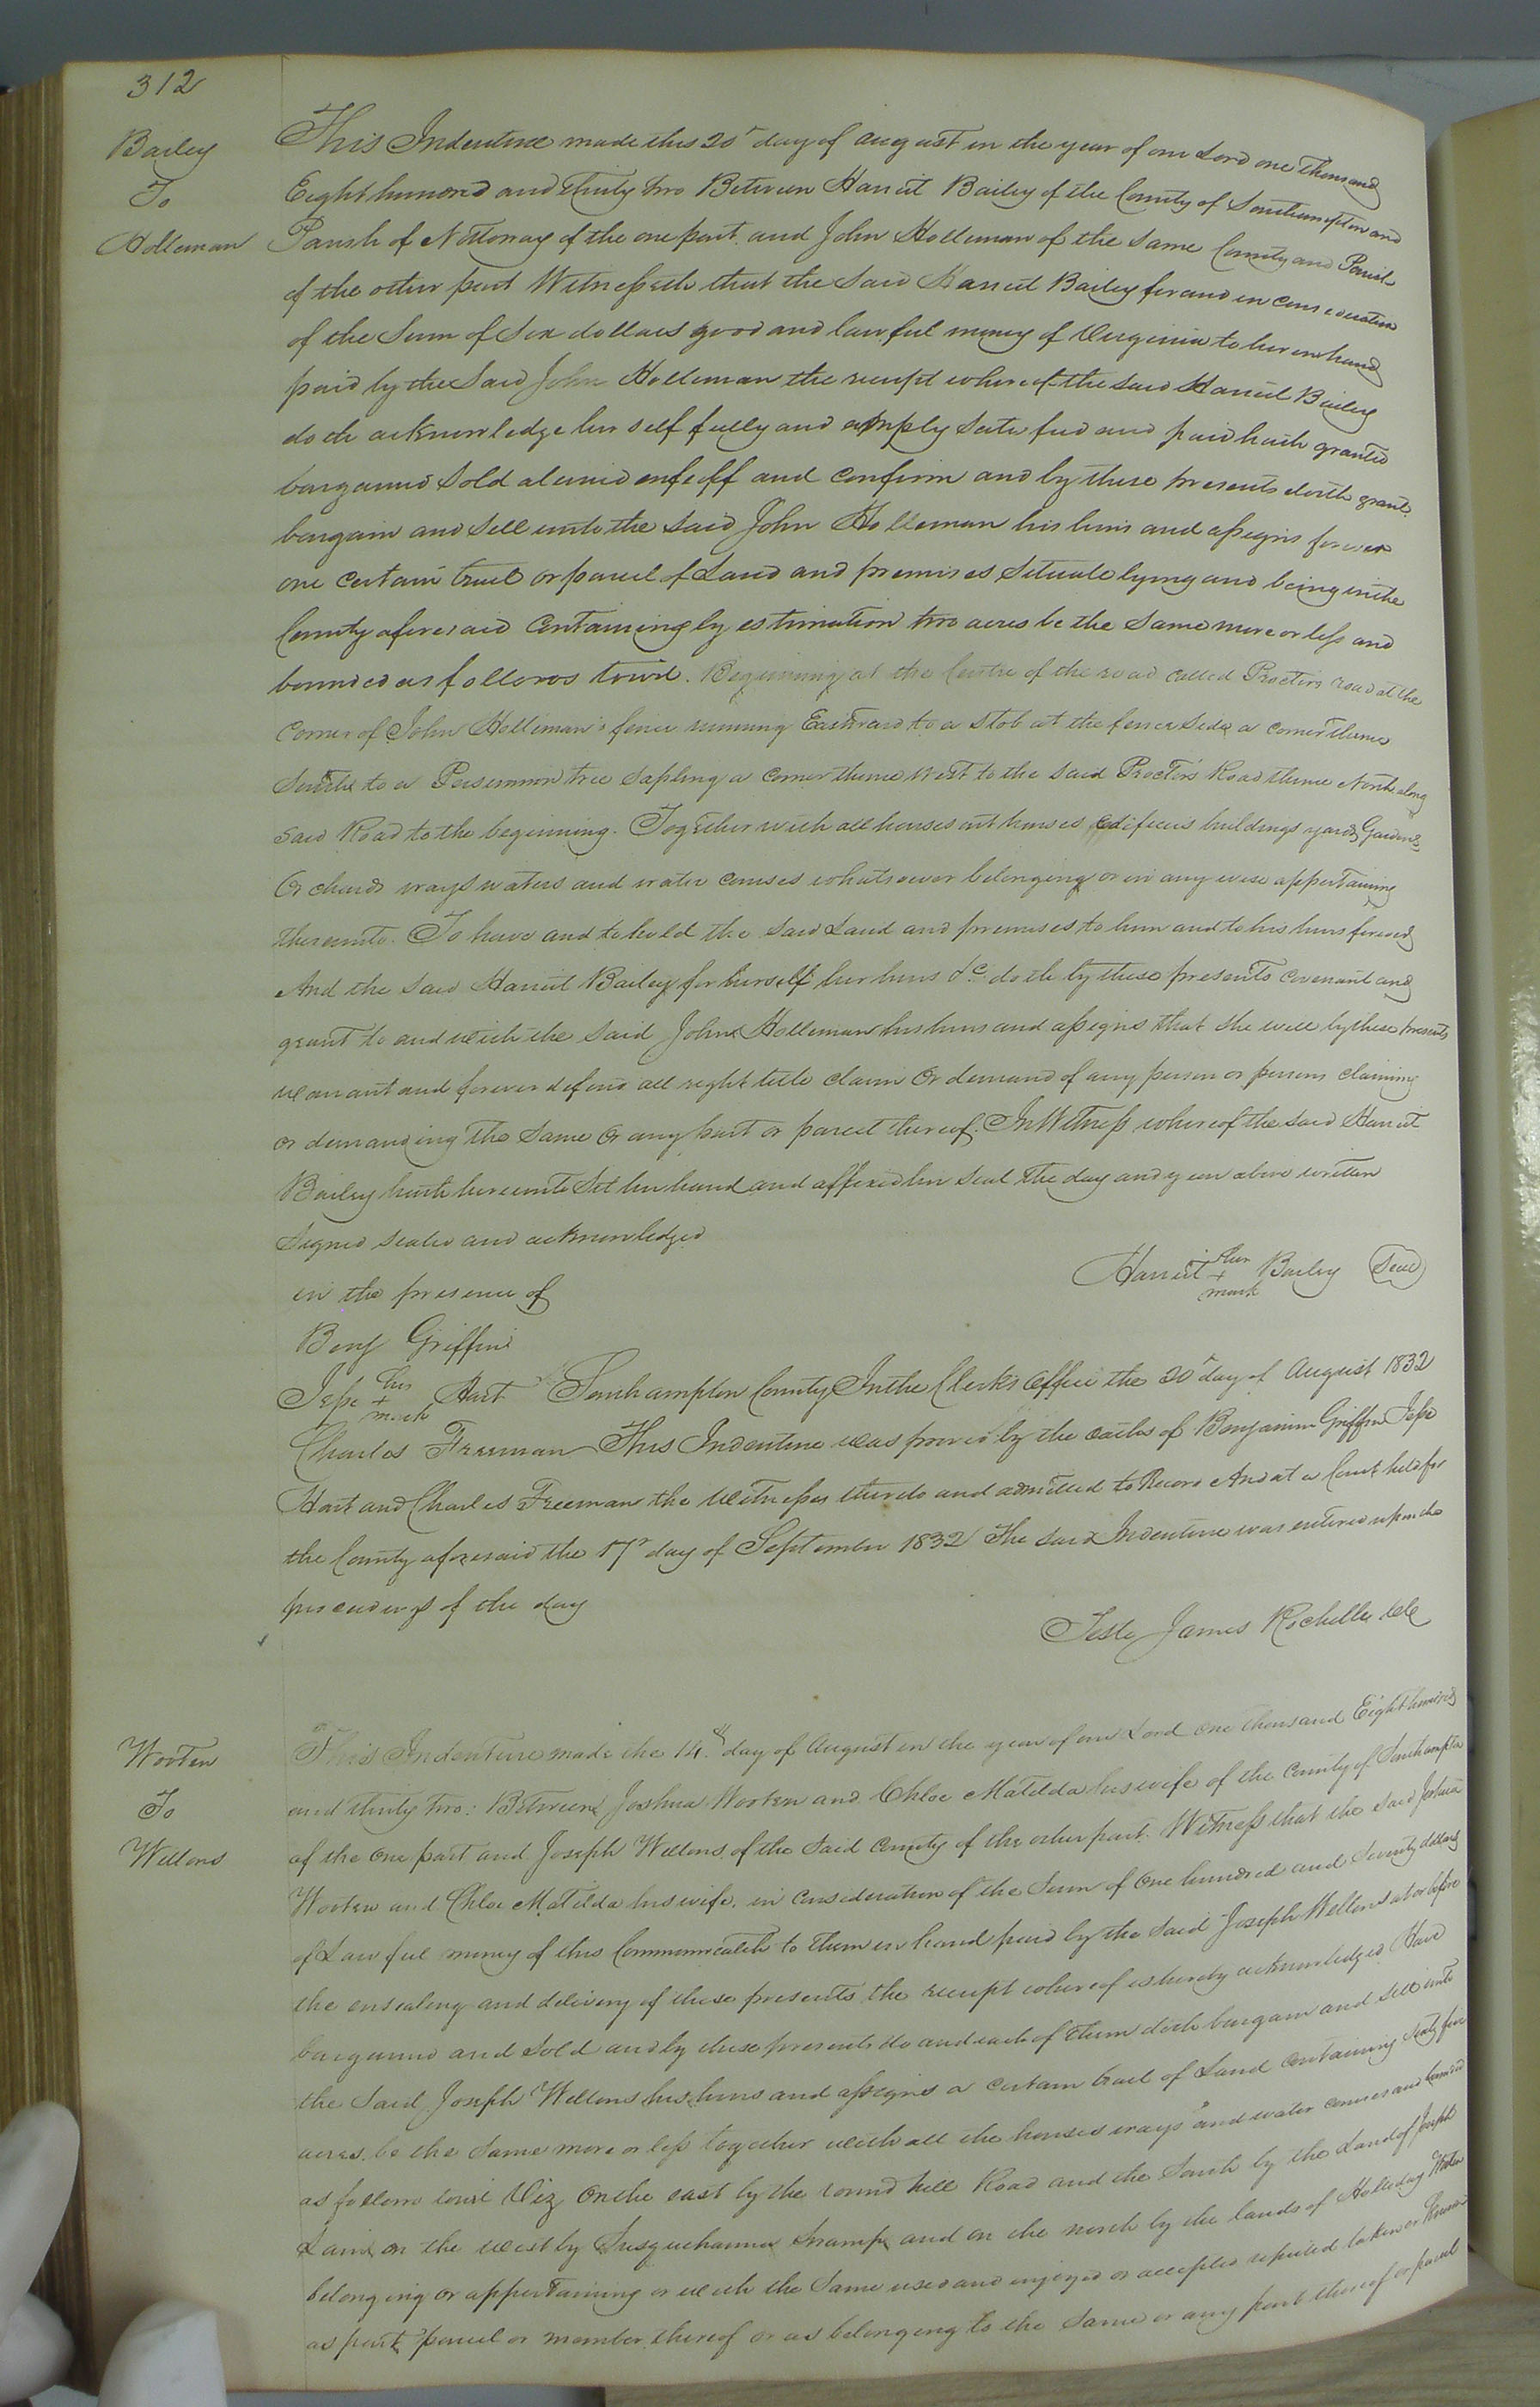 312
Bailey
To
Holleman
This Indenture made this 20th day of August in the year of our Lord one Thousand
Eight hundred and thirty two Between Harriet Bailey of the County of Southampton and
Parish of Nottoway of the one part and John Holleman of the Same County and Parish
of the other part Witnesseth that the Said Harriet Bailey for and in consideration
of the Sum of Six dollars good and lawful money of Virginia to her in hand
paid by the Said John Holleman the receipt whereof the Said Harriet Bailey
doth acknowledge her self fully and amply Satisfied and paid hath granted
bargained Sold aliened enfeoff and confirm and by these presents doth grant
bargain and Sell unto the Said John Holleman his heirs and assigns forever
one certain tract or parcel of Land and premises Situate lying and being in the
County aforesaid Containing by estimation two acres be the Same more or less and
bounded as follows towit. Beginning at the Centre of the road called Proctors road at the
Corner of John Holleman's fence running Eastward to a Stob at the fence Side a corner thence
South to a Persemmon tree Sapling a corner thence West to the Said Proctor's Road thence North along
Said Road to the beginning. Together with all houses out houses edifices buildings yards Gardens
Orchards ways waters and water courses whatsoever belonging or in any wise appertaining
thereunto. To have and to hold the Said Land and premises to him and to his heirs forever
And the Said Harriet Bailey for herself her heirs &c doth by these presents covenant and
grant to and with the Said John Holleman his heirs and assigns that She will by these presents
warrant and forever defend all right title claim or demand of any person or persons claiming
or demanding the Same or any part or parcel thereof. In Witness whereof the Said Harriet
Bailey hath hereunto Set her hand and affixed her Seal the day and year above written
Signed Sealed and acknowledged
in the presence of
Harriet her + mark Bailey Seal
Benj Griffin
Jesse his + mark Hart Southampton County In the Clerk's Office the 20th day of August 1832
Charles Freeman This Indenture was proved by the oaths of Benjamin Griffin Jesse
Hart and Charles Freeman the Witnesses thereto and admitted to Record And at a Court held for
the County aforesaid the 17th day of September 1832 The Said Indenture was entered upon the
proceedings of the day
Teste James Rochelle Clk
Wooten
To
Wellons
This Indenture made the 14th day of August in the year of our Lord one thousand Eight hundred
and thirty two: Between Joshua Wooten and Chloe Matilda his wife of the County of Southampton
of the one part and Joseph Wellons of the Said County of the other part. Witness that the Said Joshua
Wooten and Chloe Matilda his wife, in consideration of the Sum of One hundred and Seventy dollars
of Lawful money of this Commonwealth to them in hand paid by the Said Joseph Wellons at or before
the ensealing and delivery of these presents the receipt whereof is hereby acknowledged Have
bargained and Sold and by these presents do and each of them doth bargain and Sell unto
the Said Joseph Wellons his heirs and assigns a certain tract of Land containing Sixty five
acres be the Same more or less together with all the houses ways and water courses and bounded
as follows towit Viz On the east by the round hill Road and the South by the Land of Joseph
Lain on the west by Susquehanna Swamp and on the north by the lands of Holliday Wooten
belonging or appertaining or with the Same used and enjoyed or accepted reputed taken or known
as part parcel or member thereof or as belonging to the Same or any part thereof or parcel